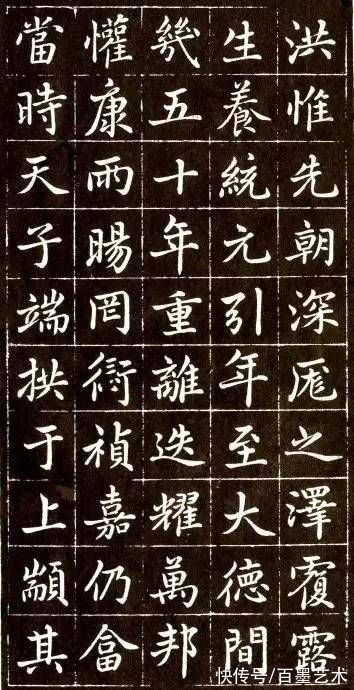 洪惟先朝深厖之澤覆露
生養統元引年至大德間
幾五十年重離迭耀萬邦
懽康雨暘罔愆禎嘉仍畣
當時天子端拱于上顓其
快传号/百墨艺术